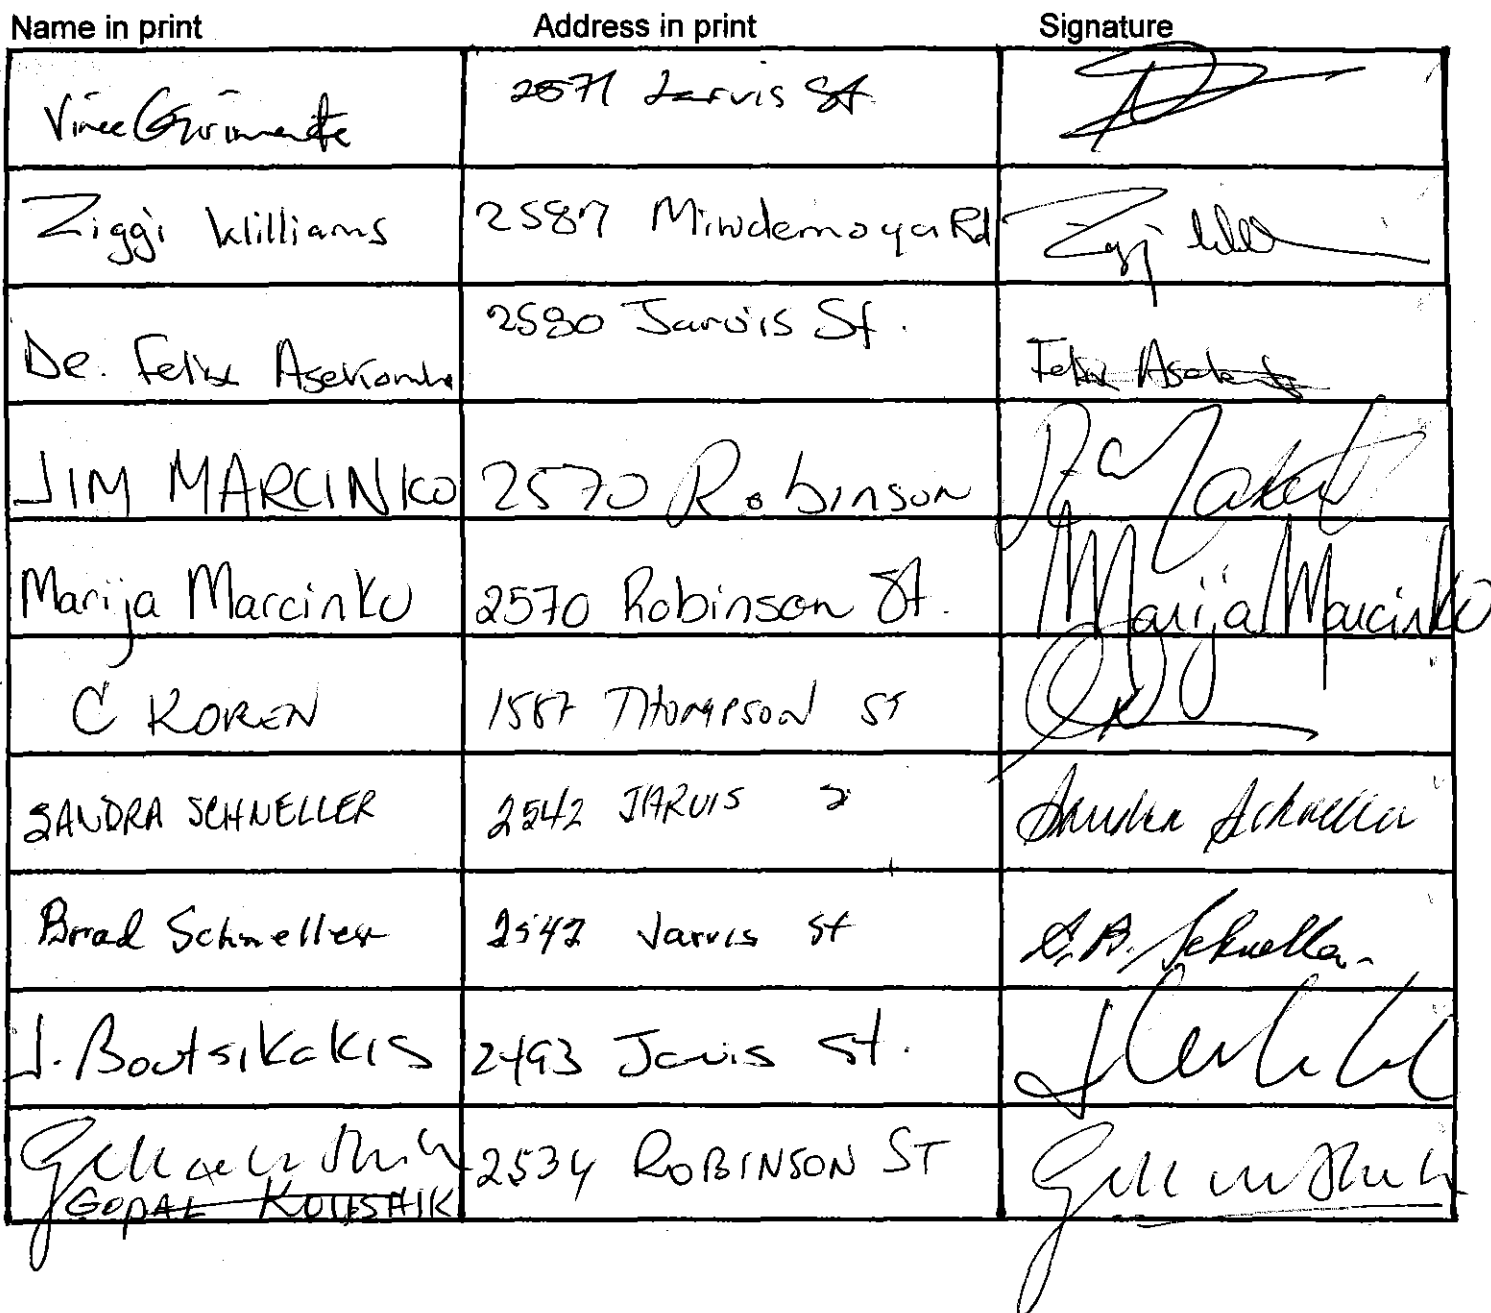 Name in print Address in print Signature
Vince 2571 Jarvis St
Ziggi Williams 2587 Mindemoya Rd
De. Felix 2580 Jarvis St. Felix
JIM MARCINKO 2570 Robinson
Marija Marcinko 2570 Robinson St. Marija Marcinko
C KOREN 1587 THOMPSON ST
SANDRA SCHNELLER 2542 JARVIS Sandra Schneller
Brad Schneller 2542 Jarvis St S.B. Schneller
J. Boutsikakis 2493 Jarvis St.
2534 ROBINSON ST
GOPAL KOUSHIK